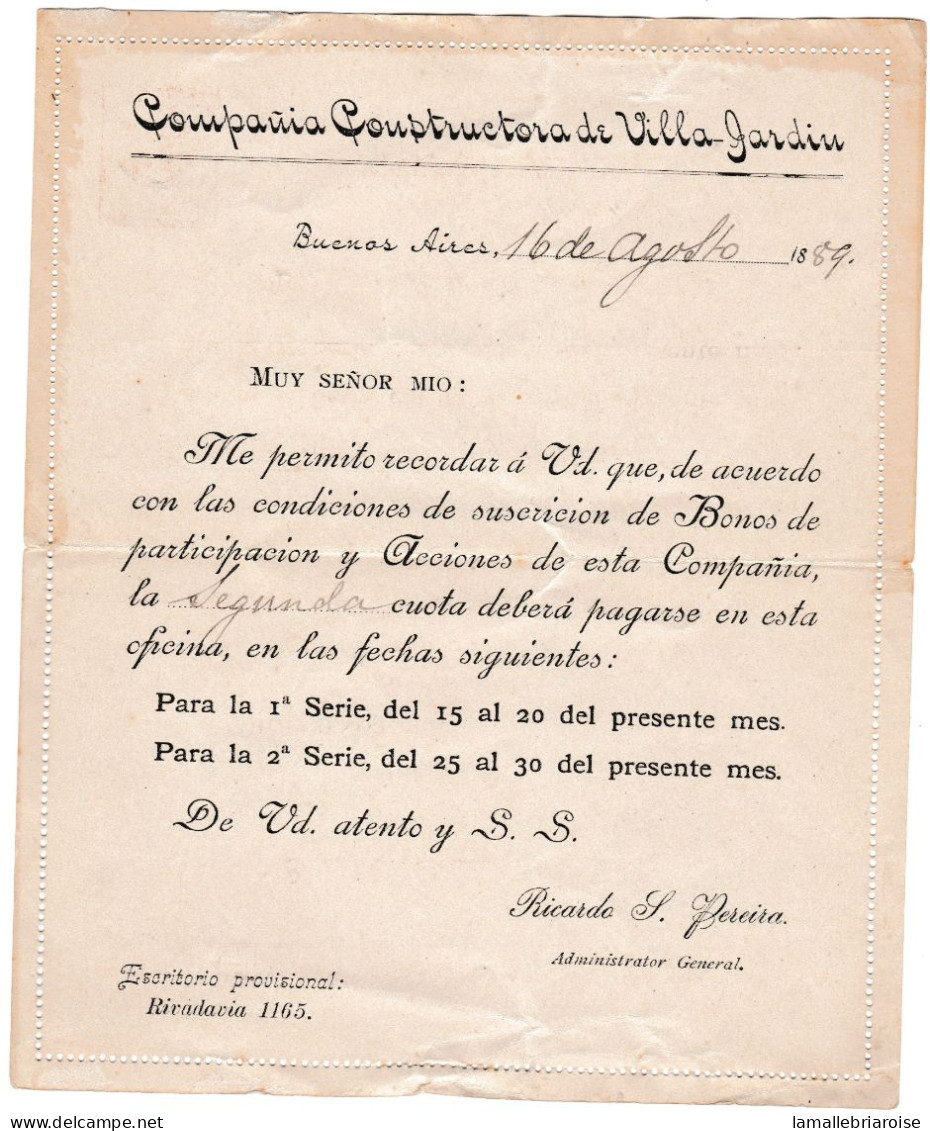 Compañia Constructora de Villa-Jardin
Buenos Aires, 16 de Agosto 1889.
MUY SEÑOR MIO:
Me permito recordar á Vd. que, de acuerdo
con las condiciones de suscricion de Bonos de
participacion y Acciones de esta Compañia,
la Segunda cuota deberá pagarse en esta
oficina, en las fechas siguientes:
Para la 1ª Serie, del 15 al 20 del presente mes.
Para la 2ª Serie, del 25 al 30 del presente mes.
De Vd. atento y S. S.
Ricardo S. Pereira.
Administrator General.
Escritorio provisional:
Rivadavia 1165.
Delcampe.net
lamallebriaroise